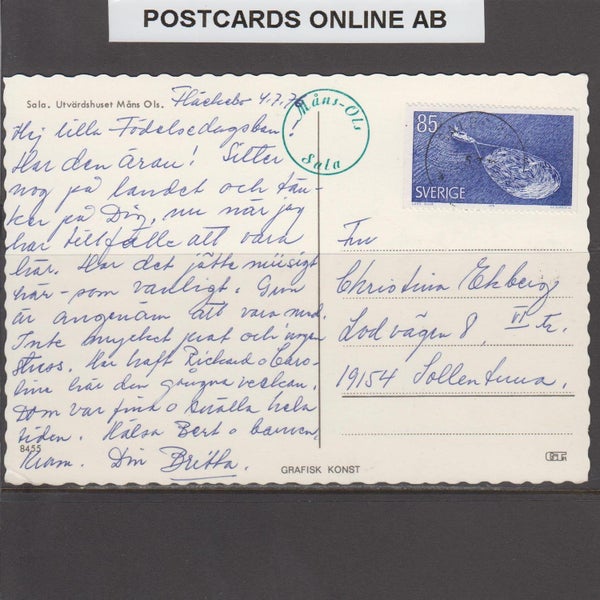 POSTCARDS ONLINE AB
Sala. Utvärdshuset Måns Ols.
Fläckebo 4.7.76
Måns-Ols
Sala
85
SVERIGE
Hej lilla Födelsedagsbarn!
Har den äran! Sitter
nog på landet och tän-
ker på Dig, nu när jag
har tillfälle att vara
här. Har det jätte mysigt
här - som vanligt. Gun
är angenäm att vara med.
Inte mycket prat och ingen
stress. Har haft Rickard o Caro-
lina här den gångna veckan.
Dom var fina o snälla hela
tiden. Hälsa Bert o barnen.
Kram. Din Britta.
8455
Fru
Christina Ekberg
Lodvägen 8, VI tr.
19154 Sollentuna.
GRAFISK KONST